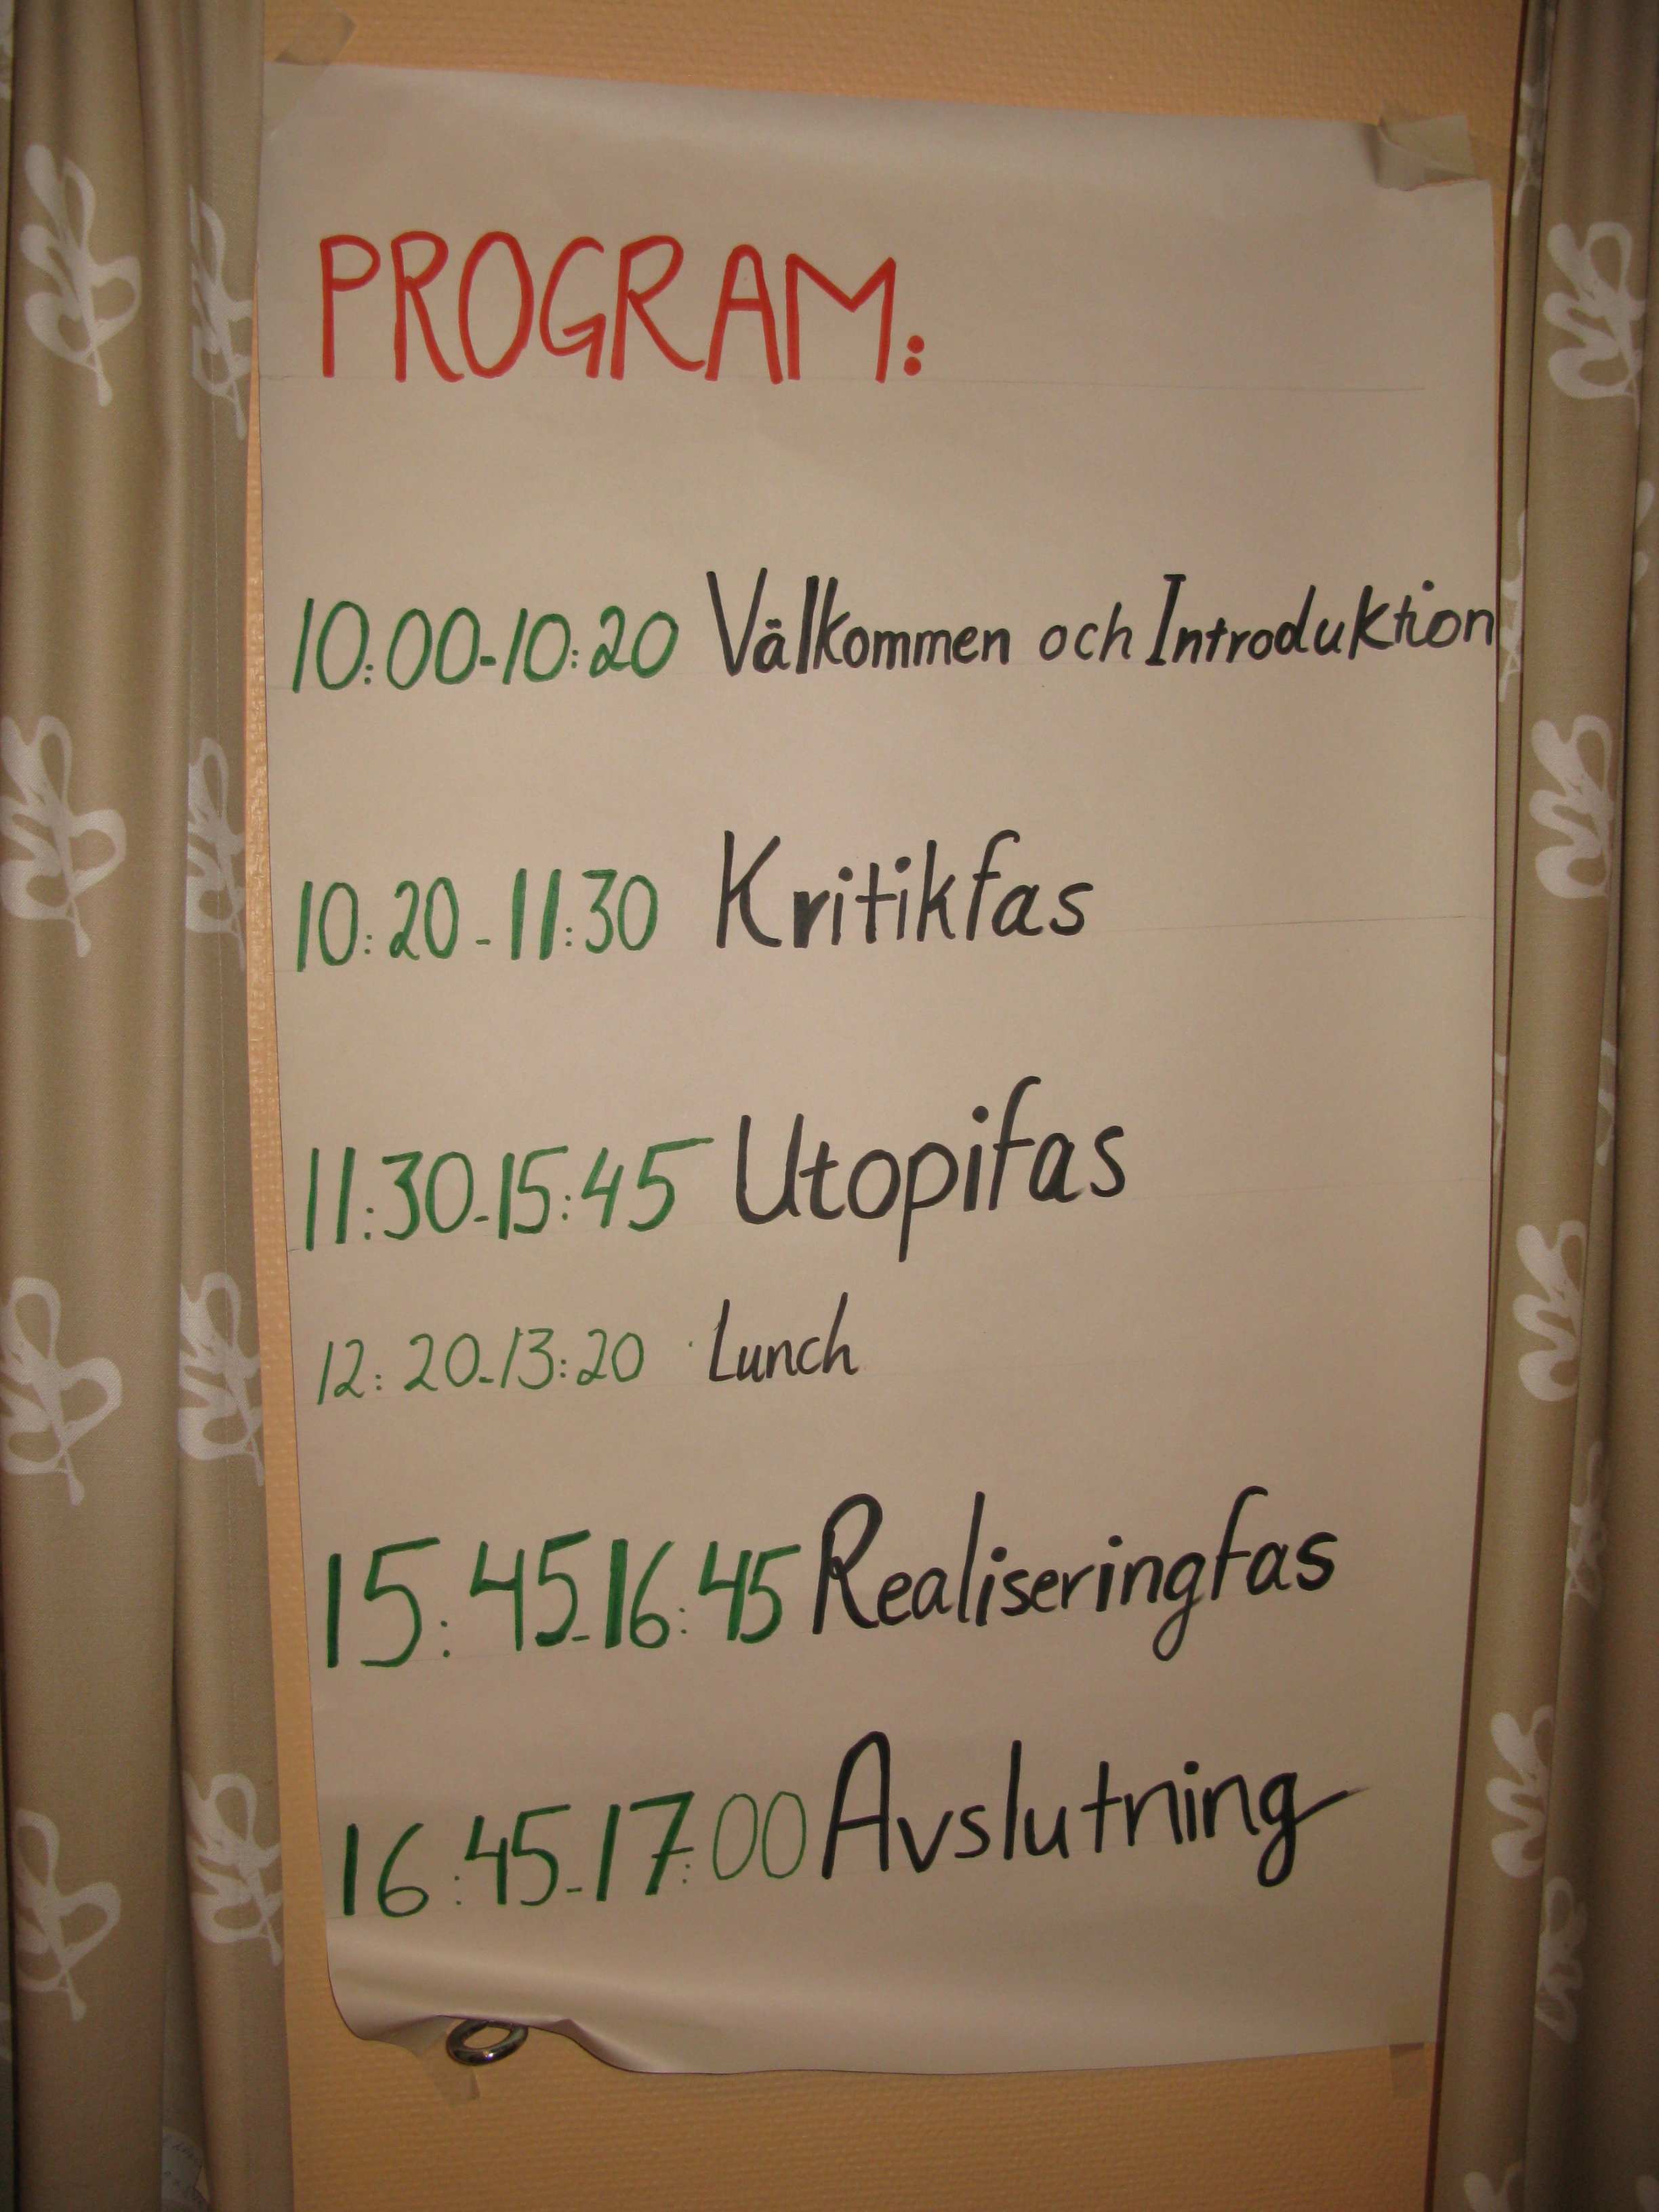 PROGRAM:
10:00-10:20 Välkommen och Introduktion
10:20-11:30 Kritikfas
11:30-15:45 Utopifas
12:20-13:20 Lunch
15:45-16:45 Realiseringfas
16:45-17:00 Avslutning